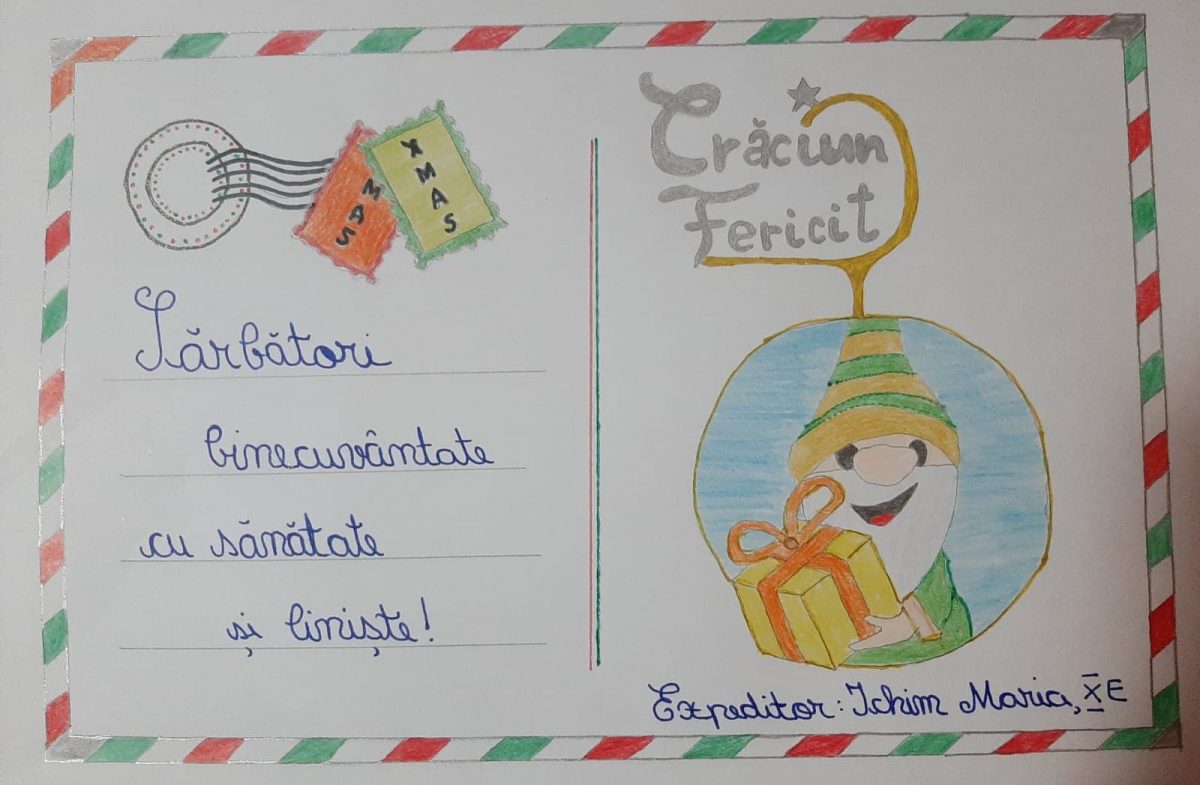 MAS
XMAS
Sărbători
binecuvântate
cu sănătate
și liniște!
Crăciun
Fericit
Expeditor: Ichim Maria, X E